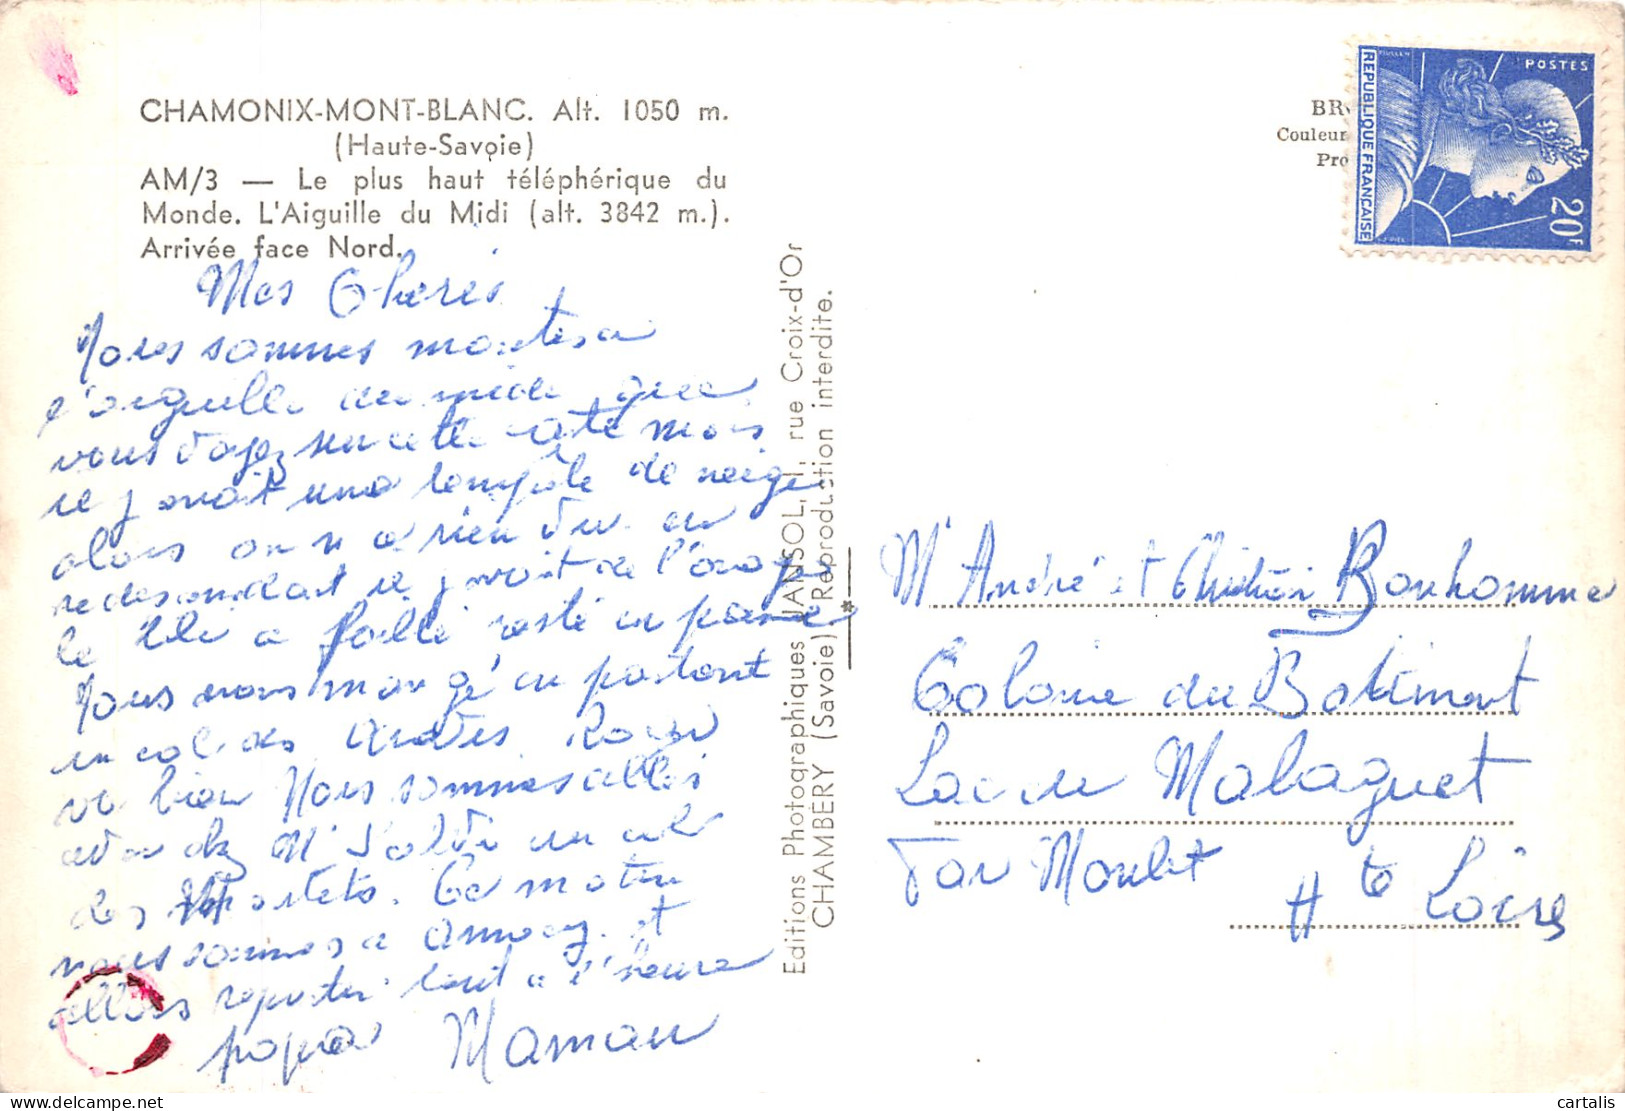 CHAMONIX-MONT-BLANC. Alt. 1050 m.
(Haute-Savoie)
AM/3 — Le plus haut téléphérique du
Monde. L'Aiguille du Midi (alt. 3842 m.).
Arrivée face Nord.
Mes Cheris
Nous sommes montes a
l'aiguille du midi que
vous voyez sur cette carte mais
il y avait une tempete de neige
alors on n a rien vu en
redescendant il y avait de l'orage
le tele a failli resté en panne
Nous avons mangé en partant
au col des
va bien Nous sommes allés
chez Mr
des Ce matin
nous sommes a annecy et
allons repartir tout a l'heure
papa Maman
Editions Photographiques JANSOL, 1, rue Croix-d'Or
CHAMBÉRY (Savoie) Reproduction interdite.
*
BR
Couleur
Pro
POSTES
REPUBLIQUE FRANÇAISE
20F
Mr André et Bonhomme
Colonie du Batiment
Lac du Malaguet
Par Monlet
Hte Loire
cartalis